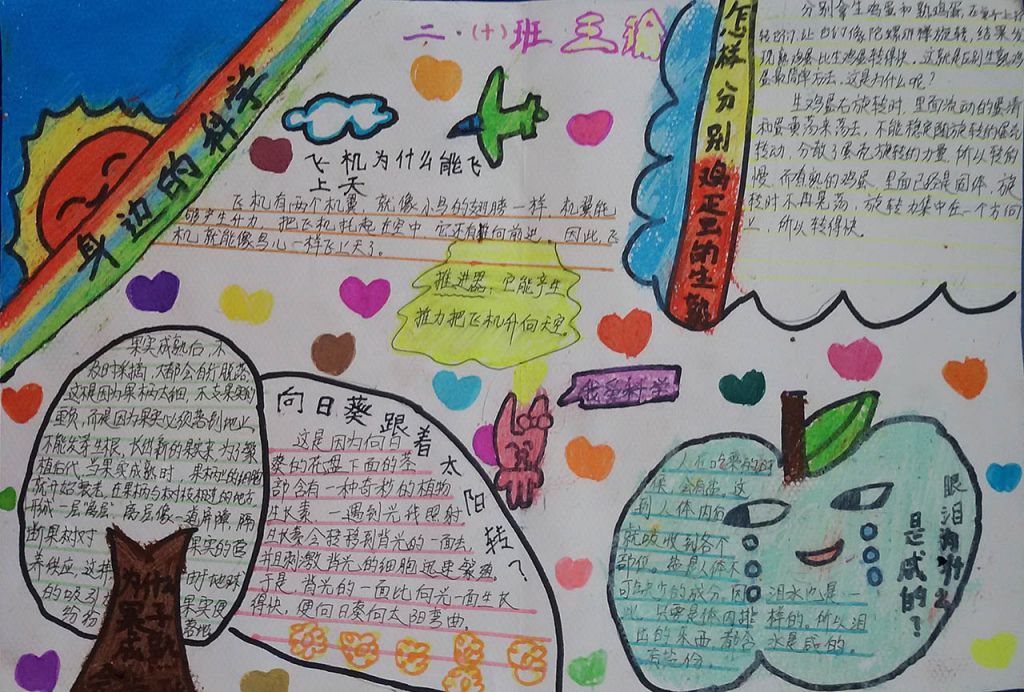 二·(十)班 王
身边的科学
飞机为什么能飞
上天
飞机有两个机翼,就像小鸟的翅膀一样,机翼能
够产生升力,把飞机托起在空中,它还有推向前进,因此,飞
机就能像鸟儿一样飞上天了。
推进器,它能产生
推力把飞机升向天空。
怎样分别鸡蛋的生熟
分别拿生鸡蛋和熟鸡蛋,在桌子上
转它们,让它们像陀螺那样旋转,结果发
现熟鸡蛋比生鸡蛋转得快,这就是区别生熟鸡
蛋最简单方法,这是为什么呢?
生鸡蛋在旋转时,里面流动的蛋清
和蛋黄荡来荡去,不能稳定随旋转的蛋壳
转动,分散了蛋壳旋转的力量,所以转的
慢,而有熟的鸡蛋,里面已经是固体,旋
转时不再晃荡,旋转力集中在一个方向
上,所以转得快。
我爱科学
果实成熟后,不
及时采摘,大都会自行脱落,
这是因为果柄太细,不支果实的
重负,而是因为果实必须落到地上,
不能发芽生根,长出新的果实来,为了繁
植后代,当果实成熟时,果柄上的细胞
就开始衰老,在果柄与树枝相连的地方
形成一层"离层",离层像一道屏障,隔
断果树对 果实的营
养供应,这样 由于地球
的吸引 果实便
纷纷 落地
为什么
果子
向日葵跟着太阳转?
这是因为向日
葵的花盘下面的茎
部含有一种奇妙的植物
生长素,一遇到光线照射
生长素会转移到背光的一面去,
并且刺激背光的细胞迅速繁殖,
于是,背光的一面比向光一面生长
得快,便向日葵向太阳弯曲。
眼泪为什么
是咸的?
人在吃东西的时
候,会有盐,这
到人体内后
就吸收到各个
部位,盐是人体不
可缺少的成分,因 泪水也是一
此,只要是体因排 样的。所以泪
出的东西都含 水是咸的。
有盐份